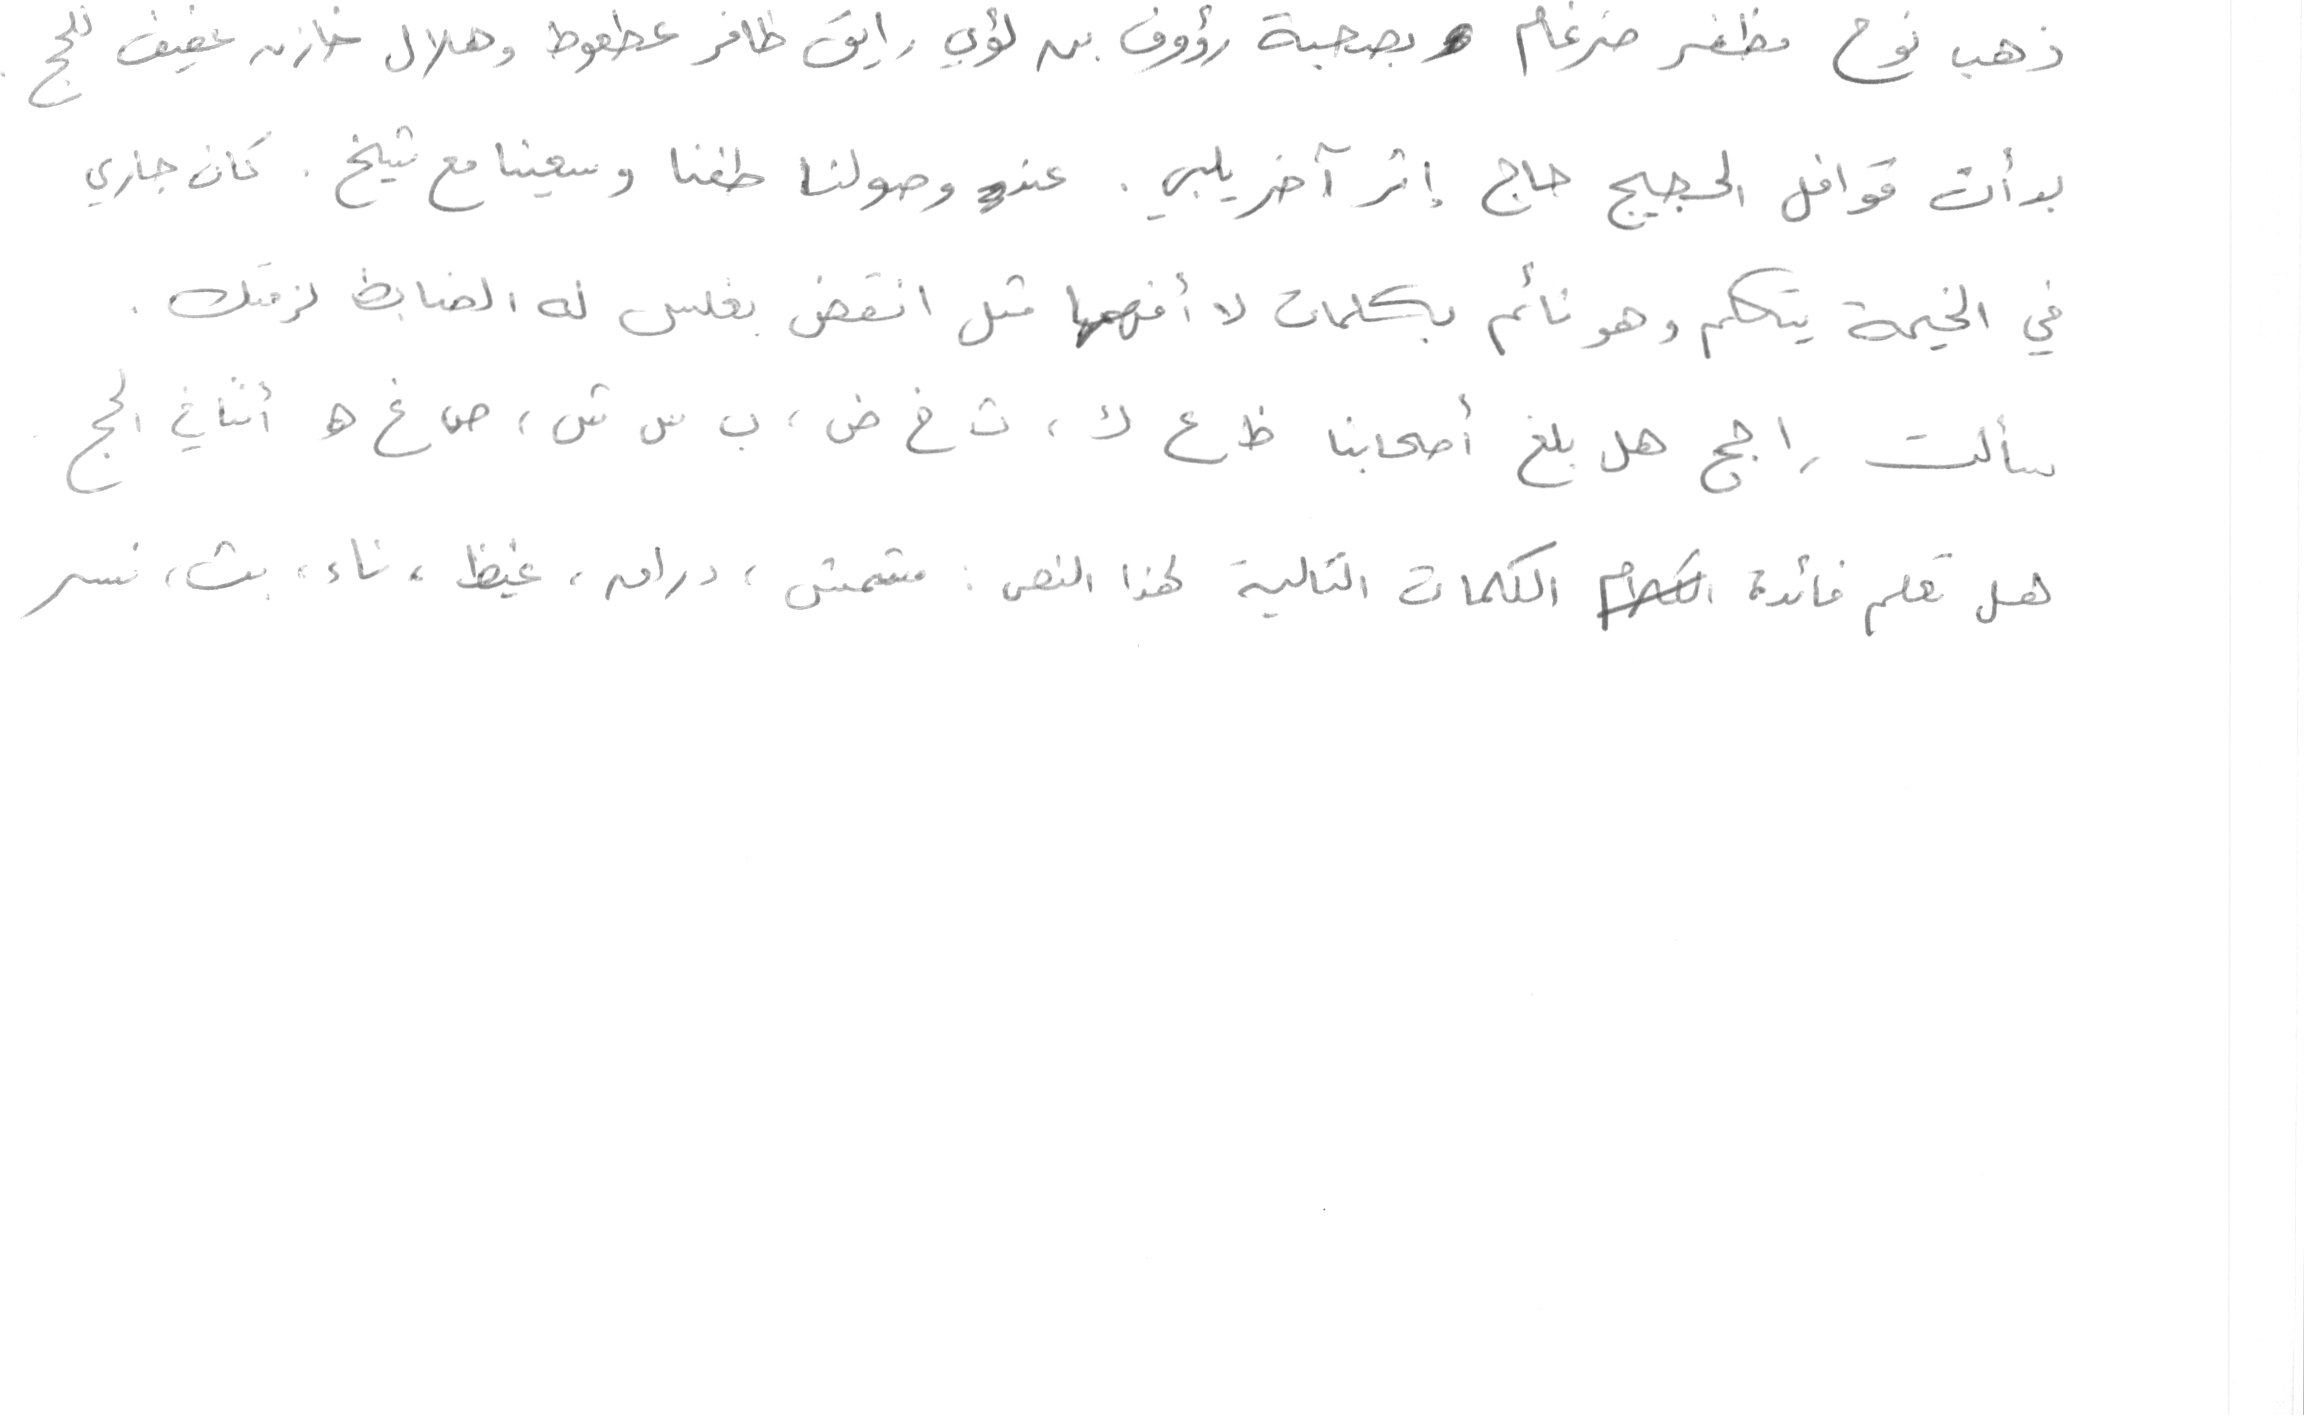 ذهب نوح مظفر ضرغام بصحبة رؤوف بن لؤي رايق ظافر عطعوط وهلال خازن عفيف للحج .
بدأت قوافل الحجيج حاج إثر آخر يلبي . عند وصولنا طفنا وسعينا مع شيخ . كان جاري
في الخيمة يتكلم وهو نائم بكلمات لا أفهمها مثل انقض بغلس له الضابط لزمتك .
سألت راجح هل بلغ أصحابنا ظ ع ك ، ث خ ض ، ب س ش ، ص غ ه أثناء الحج .
هل تعلم فائدة الكلمات التالية لهذا النص : مشمش ، دراق ، غيظ ، ناء ، بث ، نسر